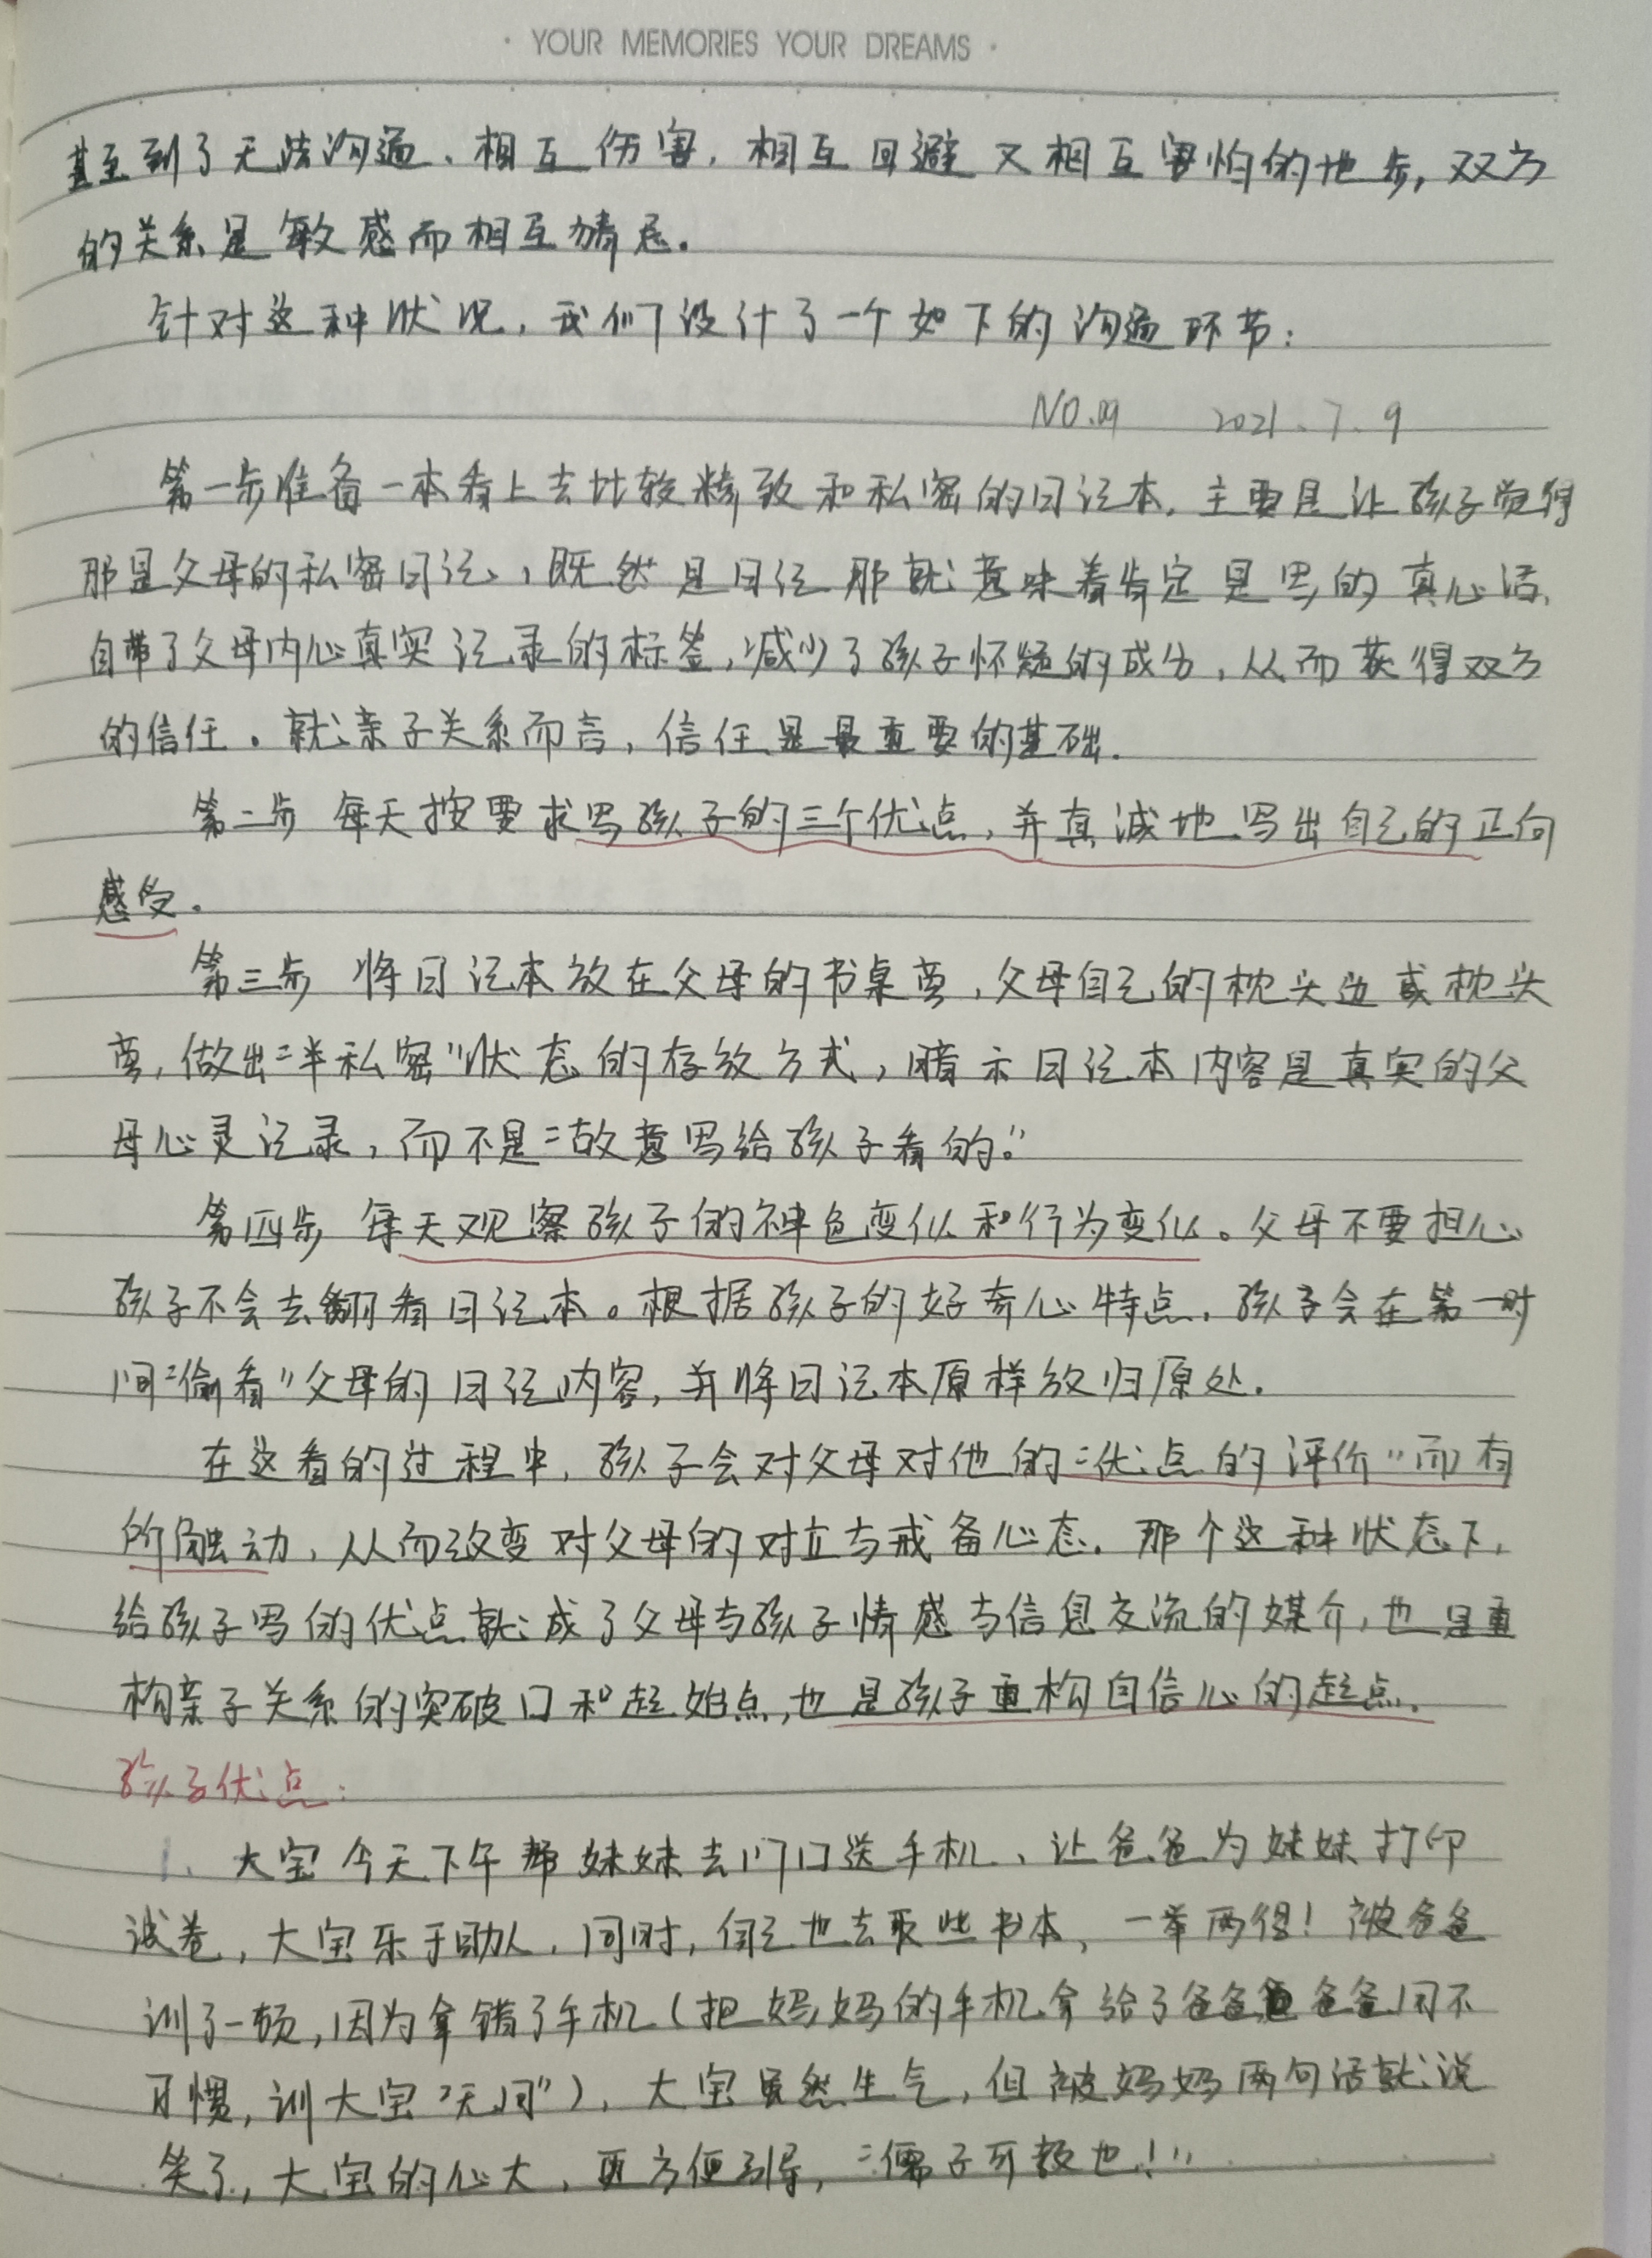 · YOUR MEMORIES YOUR DREAMS ·
甚至到了无法沟通、相互伤害，相互回避又相互害怕的地步，双方
的关系是敏感而相互猜忌。
针对这种状况，我们设计了一个如下的沟通环节：
NO.09 2021.7.9
第一步准备一本看上去比较精致和私密的日记本，主要是让孩子觉得
那是父母的私密日记，既然是日记那就意味着肯定是写的真心话，
自带了父母内心真实记录的标签，减少了孩子怀疑的成分，从而获得双方
的信任。就亲子关系而言，信任是最重要的基础。
第二步 每天按要求写孩子的三个优点，并真诚地写出自己的正向
感受。
第三步 将日记本放在父母的书桌旁，父母自己的枕头边或枕头
旁，做出“半私密”状态的存放方式，暗示日记本内容是真实的父
母心灵记录，而不是“故意写给孩子看的。”
第四步 每天观察孩子的神色变化和行为变化。父母不要担心
孩子不会去翻看日记本。根据孩子的好奇心特点，孩子会在第一时
间“偷看”父母的日记内容，并将日记本原样放归原处。
在这看的过程中，孩子会对父母对他的“优点的评价”而有
所触动，从而改变对父母的对立与戒备心态。那个这种状态下，
给孩子写的优点就成了父母与孩子情感与信息交流的媒介，也是重
构亲子关系的突破口和起始点，也是孩子重构自信心的起点。
孩子优点：
1、大宝今天下午帮妹妹去门口送手机、让爸爸为妹妹打印
试卷，大宝乐于助人，同时，自己也去取些书本，一举两得！被爸爸
训了一顿，因为拿错了手机（把妈妈的手机拿给了爸爸 爸爸用不
习惯，训大宝“无用”），大宝虽然生气，但被妈妈两句话就说
笑了，大宝的心大，更方便引导，“孺子可教也！”